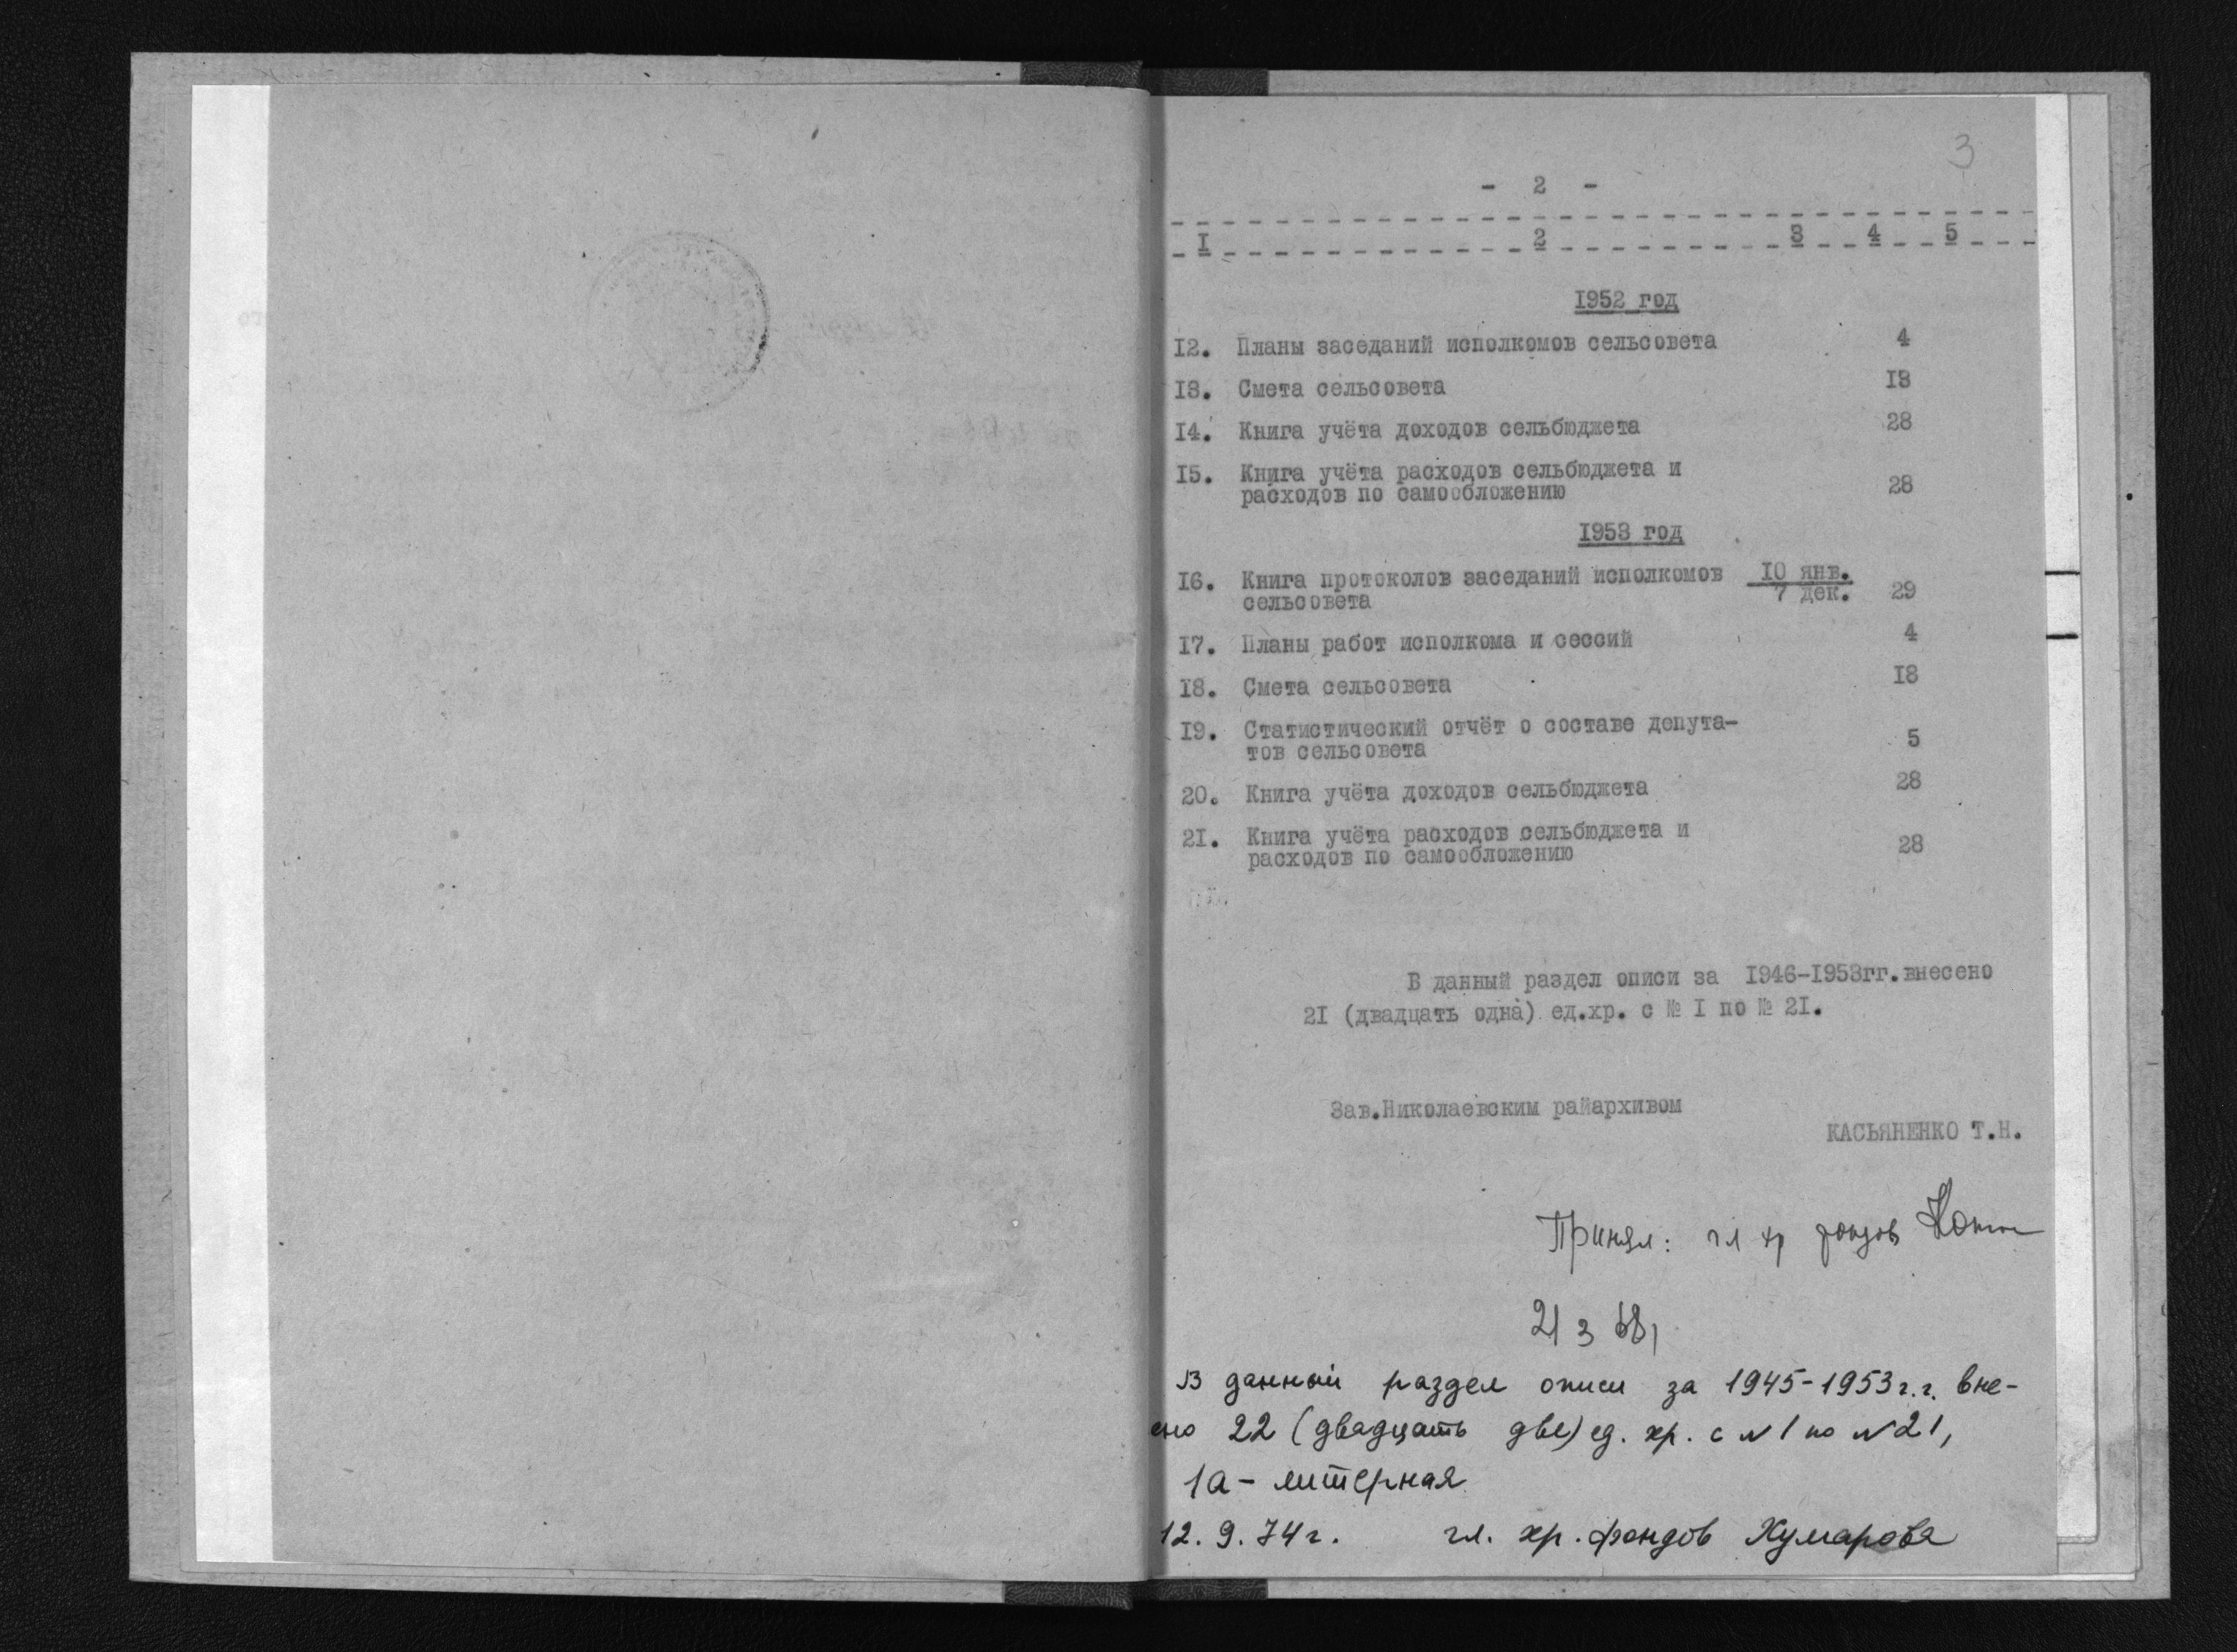 3
- 2 -
I 2 3 4 5
1952 год
I2. Планы заседаний исполкомов сельсовета 4
I3. Смета сельсовета I3
I4. Книга учёта доходов сельбюджета 28
I5. Книга учёта расходов сельбюджета и
расходов по самообложению 28
I953 год
I6. Книга протоколов заседаний исполкомов 10 янв.
сельсовета 7 дек. 29
I7. Планы работ исполкома и сессий 4
I8. Смета сельсовета I8
I9. Статистический отчёт о составе депута-
тов сельсовета 5
20. Книга учёта доходов сельбюджета 28
2I. Книга учёта расходов сельбюджета и
расходов по самообложению 28
В данный раздел описи за I946-I953гг.внесено
2I (двадцать одна) ед.хр. с № I по № 2I.
Зав.Николаевским райархивом
КАСЬЯНЕНКО Т.Н.
Принял: гл хр фондов
21 3 68г
В данный раздел описи за 1945-1953 г.г. вне-
ено 22 (двадцать две) ед. хр. с №1 по №21,
1а - литерная
12. 9. 74 г. гл. хр. фондов Хумарова